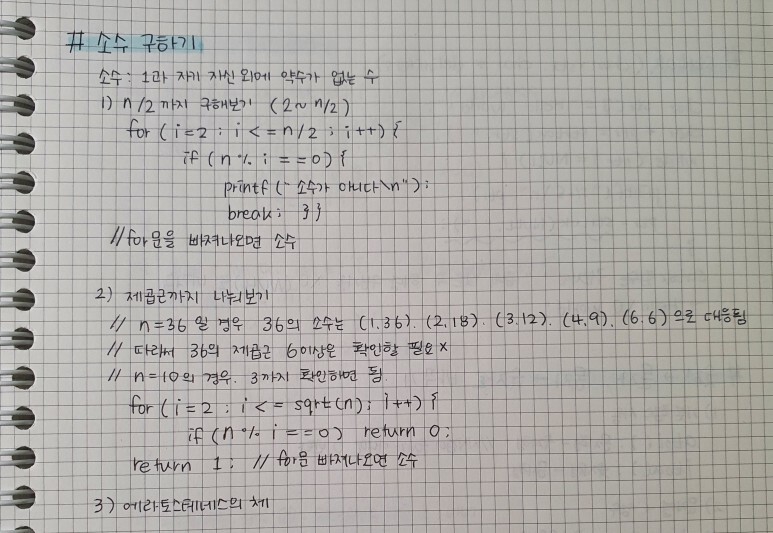 # 소수 구하기
소수 : 1과 자기 자신 외에 약수가 없는 수
1) n/2 까지 구해보기 (2~n/2)
for (i=2 ; i <= n/2 ; i++) {
if (n % i == 0) {
printf (" 소수가 아니다\n");
break; }}
// for문을 빠져나오면 소수
2) 제곱근까지 나눠보기
// n=36 일 경우 36의 소수는 (1.36). (2.18). (3.12). (4.9). (6.6) 으로 대응됨
// 따라서 36의 제곱근 6이상은 확인할 필요 x
// n=10의 경우. 3까지 확인하면 됨.
for (i=2 ; i <= sqrt(n); i++) {
if (n % i == 0) return 0;
return 1; // for문 빠져나오면 소수
3) 에라토스테네스의 체